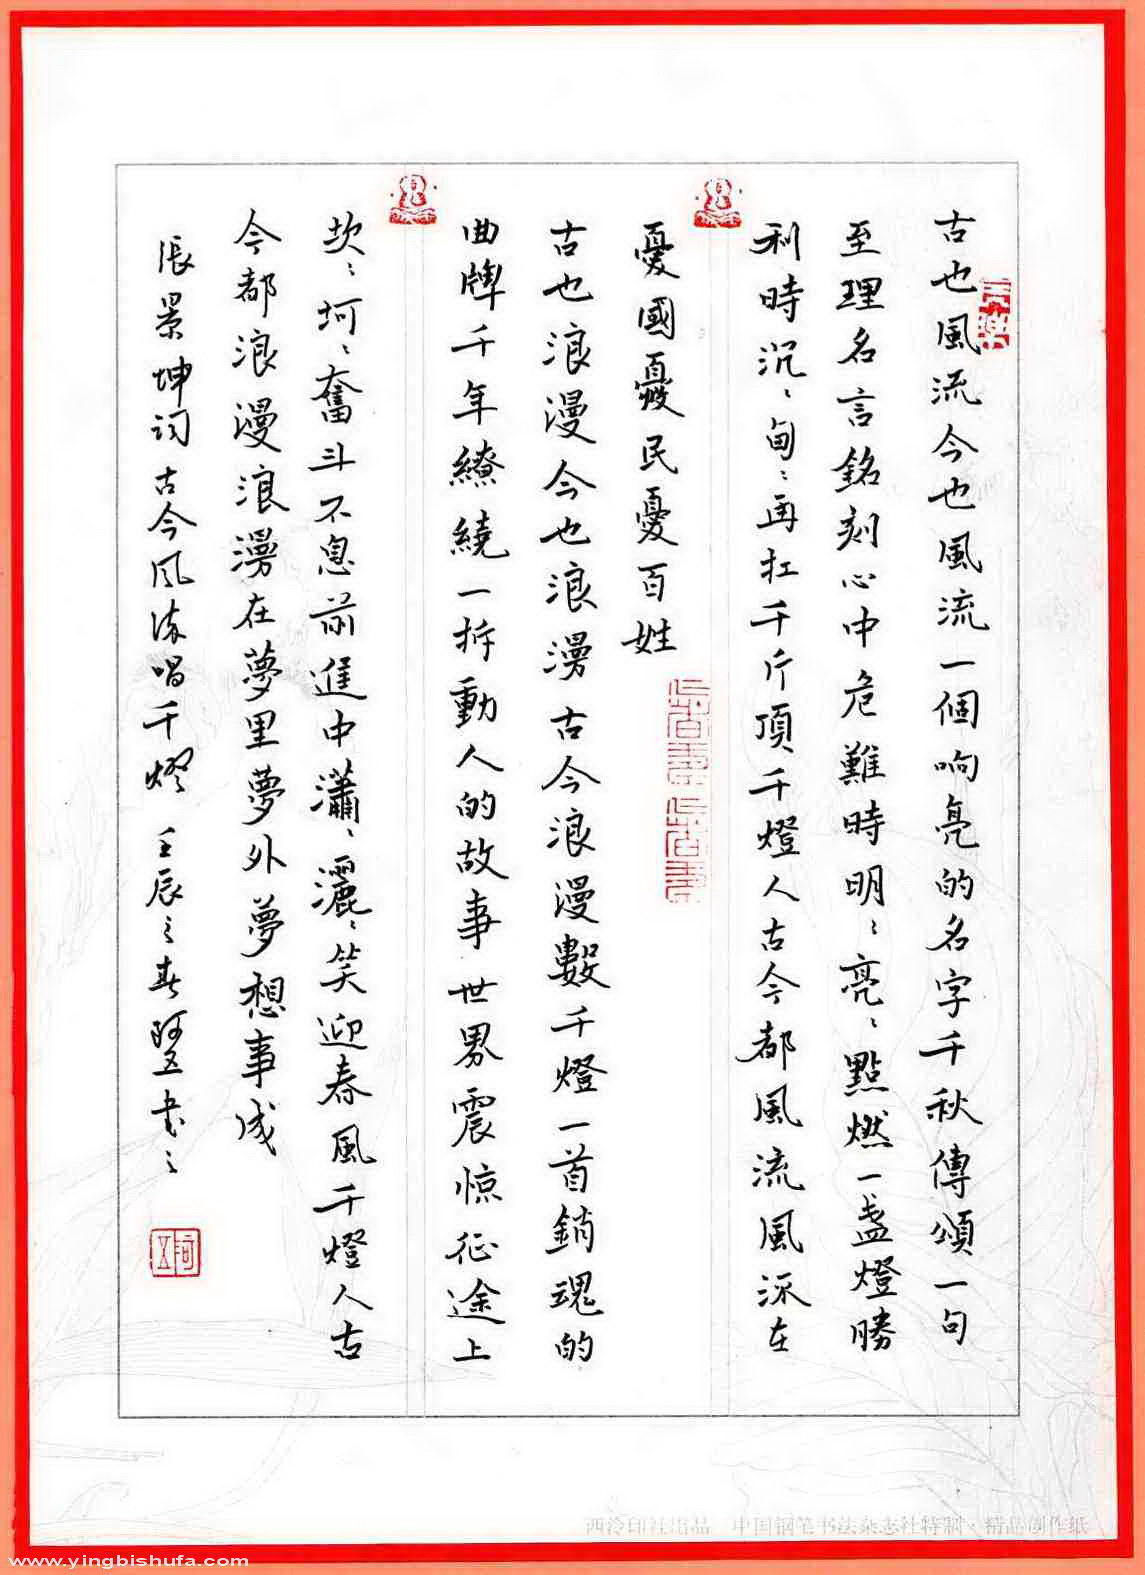 古也風流今也風流一個响亮的名字千秋傳頌一句
至理名言銘刻心中危難時明〻亮〻點燃一盏燈勝
利時沉〻甸〻再扛千斤頂千燈人古今都風流風流在
憂國憂民憂百姓
古也浪漫今也浪漫古今浪漫數千燈一首銷魂的
曲牌千年繚繞一折動人的故事世界震惊征途上
坎〻坷〻奮斗不息前進中瀟〻灑〻笑迎春風千燈人古
今都浪漫浪漫在夢里夢外夢想事成
張景坤詞古今風流唱千燈 壬辰之春阿五書之
西泠印社出品 中国钢笔书法杂志社特制·精品创作纸
www.yingbishufa.com